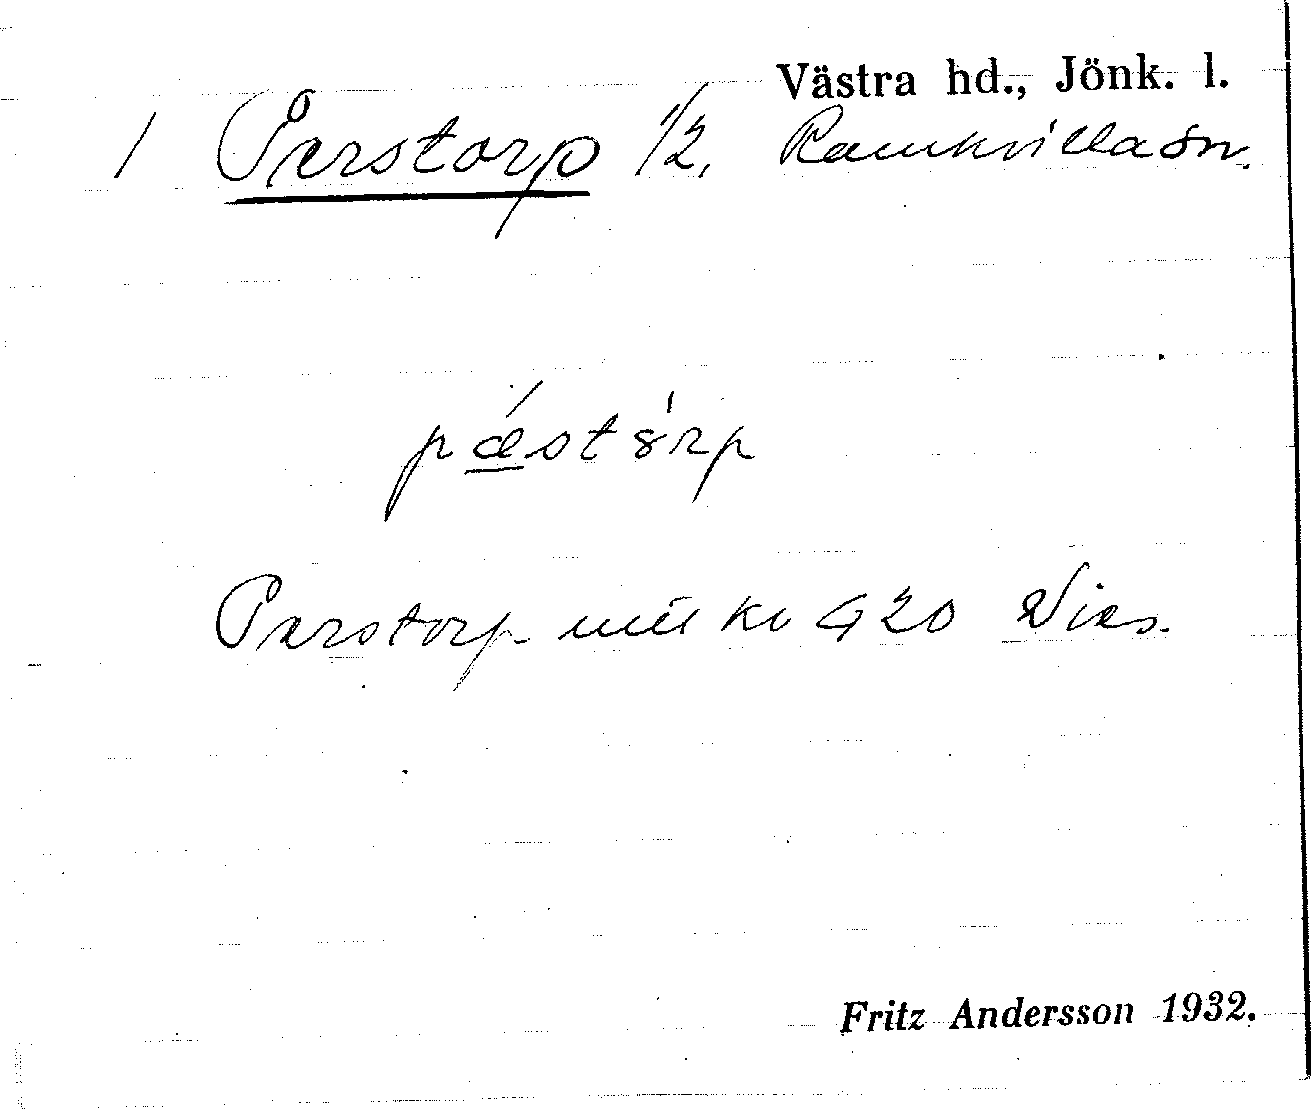 Västra hd., Jönk. l.
1 Perstorp 1/2, Ramkvilla sn.
pǽ̲stórp
Perstorp 420 Wies.
Fritz Andersson 1932.